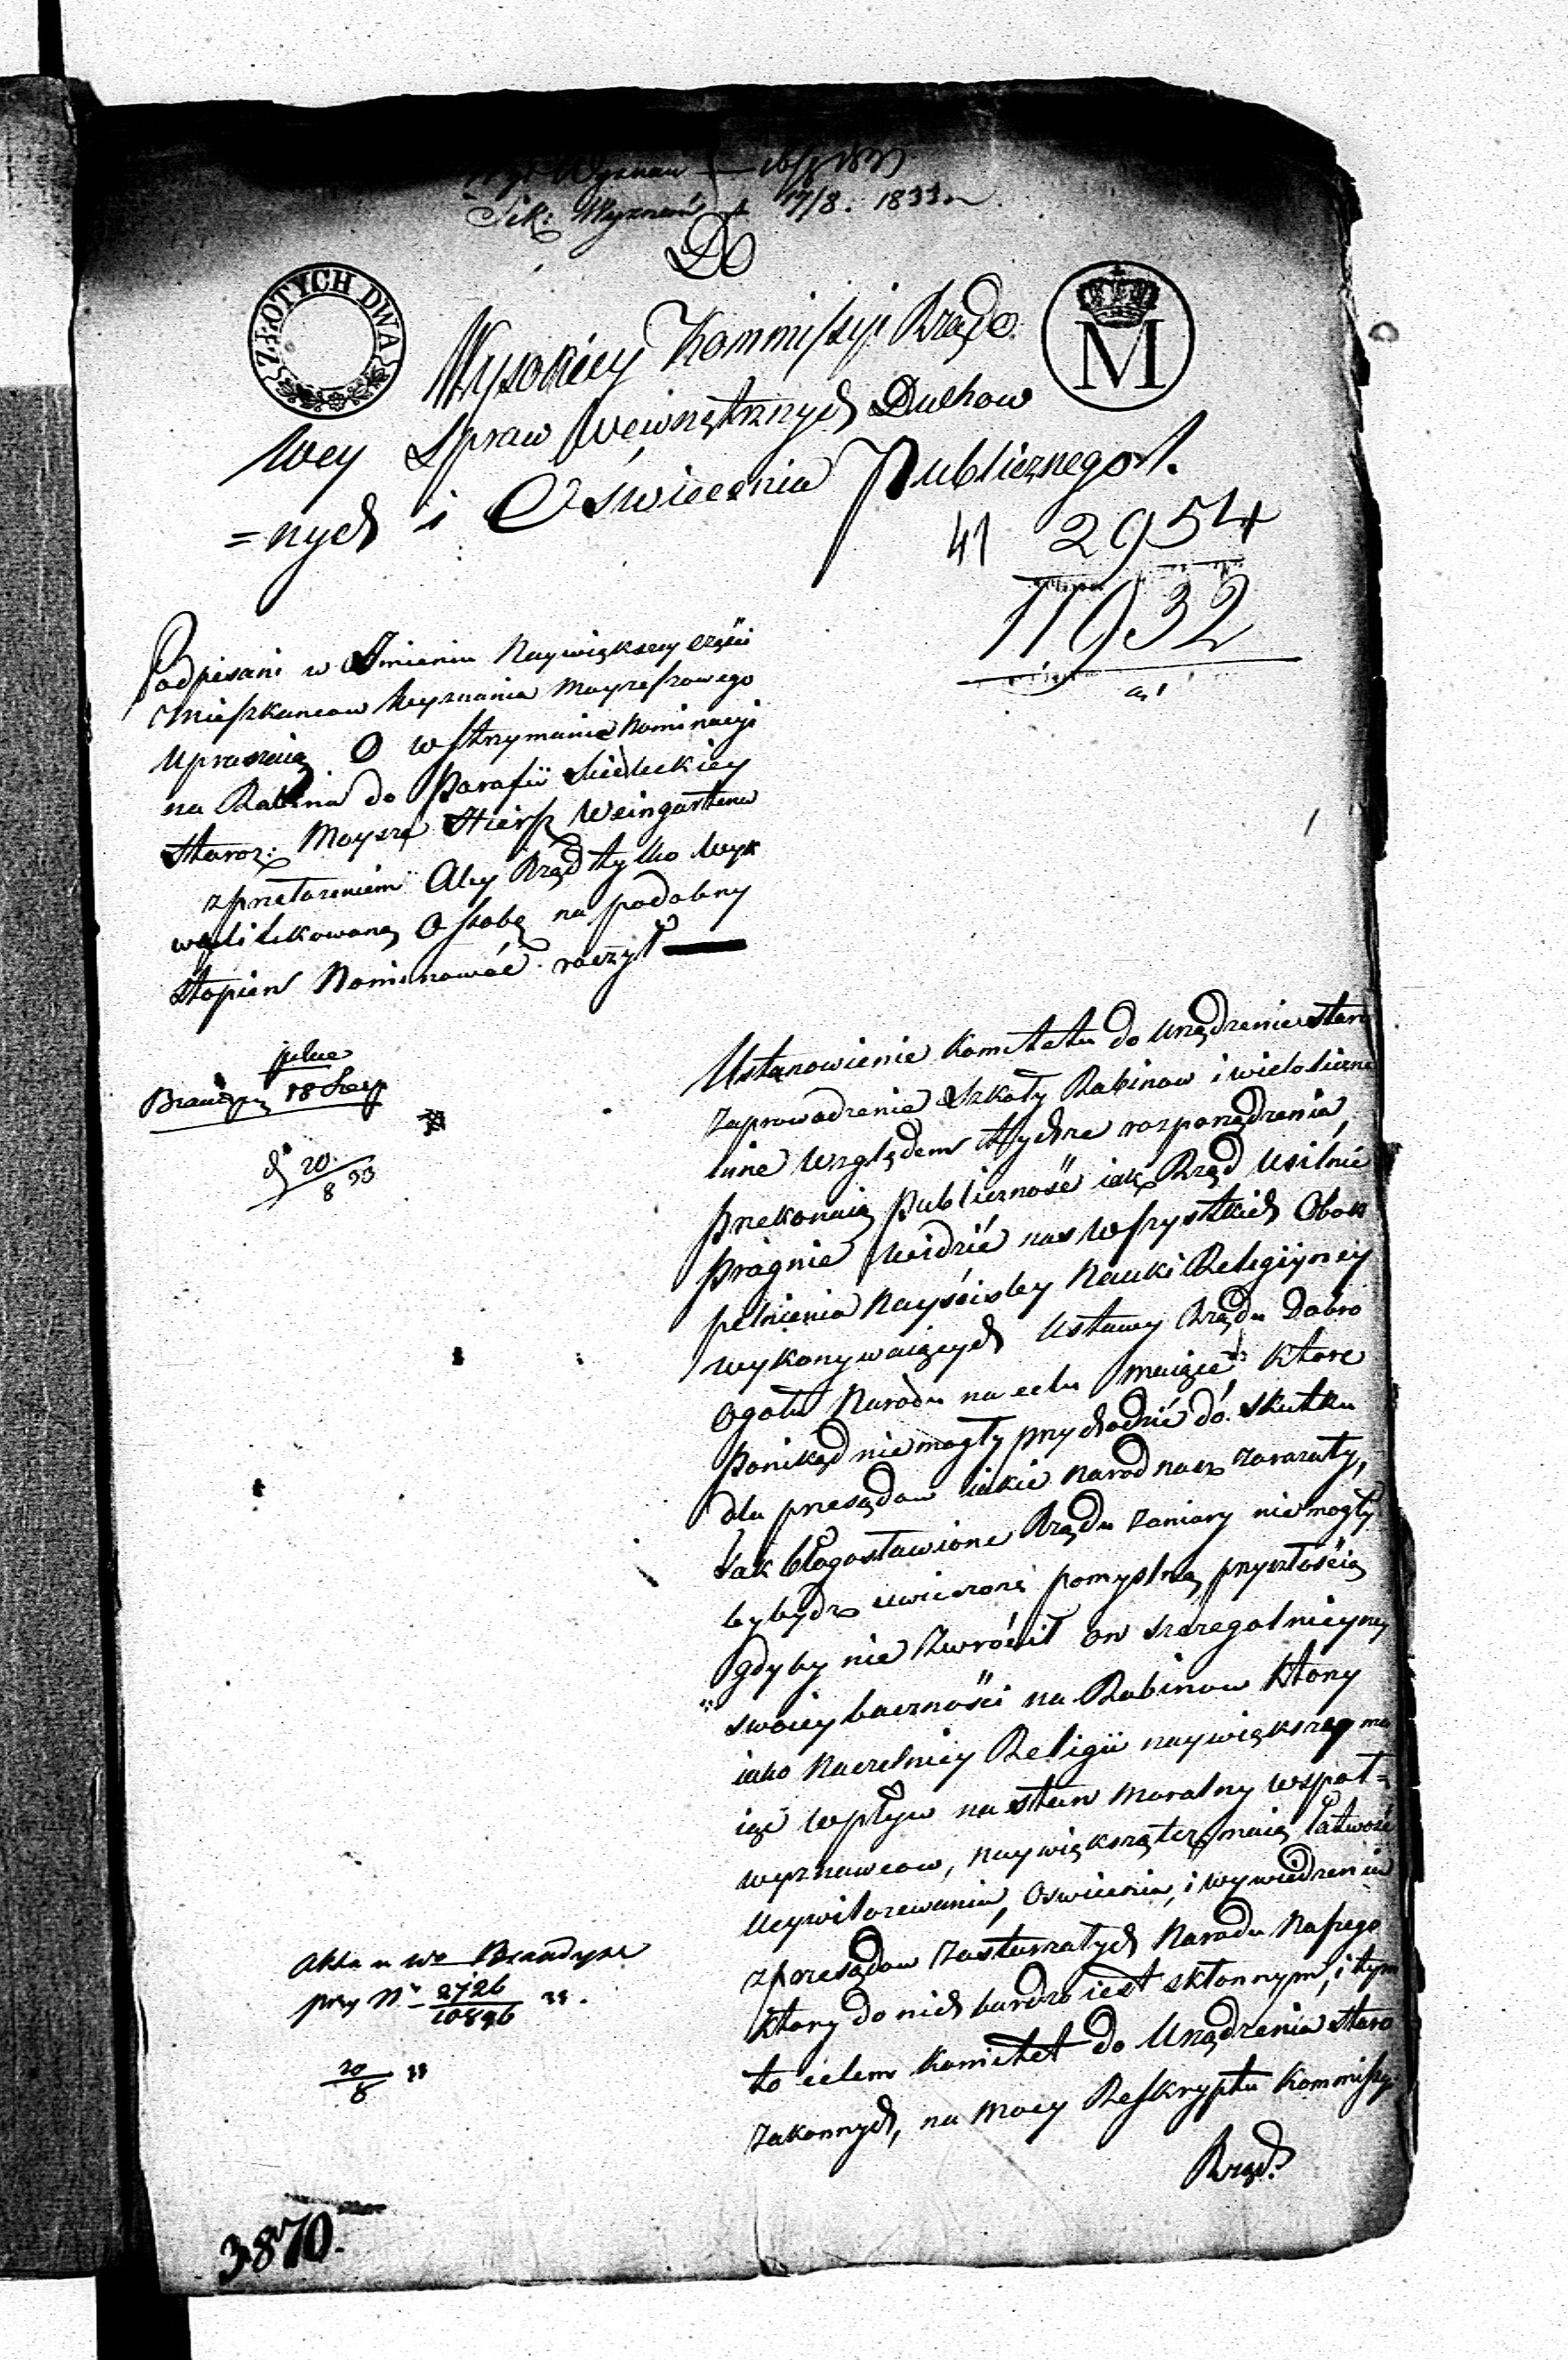 Wyznań 16/8 1833
Sek: Wyznań 17/8. 1833
Do
ZŁOTYCH DWA
M
Wysokiey Kommissyi Rządo
wey Spraw Wewnętrznych Duchow
=nych i Oświecenia Publicznego.
41 2954
11932
Podpisani w Imieniu Naywiększey części
Mieszkancow Wyznania Moyzeszowego
Upraszaią O wstrzymanie Nominacyi
na Rabina do Parafii Siedleckiey
Staroz: Moyszę Hiersz Weingartena
z przełożeniem Aby Rząd tylko wyk
walifikowaną Osobę na podobny
Stopień Nominować raczył
pilne
18 Sierp
d 20/8 33
Ustanowienie Komitetu do Urządzenia Staro
Zaprowadzenie Szkoły Rabinow i wieloliczne
inne względem tychże rozporządzenia,
przekonaią Publiczność iak Rząd Usilnie
pragnie widzić nas wszystkich Obok
pełnienia Nayściśley Nauki Religiyney
wykonywaiących Ustawy Rządu Dobro
Ogołu Narodu na celu maiące, ktore
ponikąd niemogły przychodzić do skutku
dla przesądow iakie Narod nasz zarażały,
Jak błogosławione Rządu zamiary niemogły
by bydz uwieczone pomyślną przyszłością
gdyby nie zwrócił on szczegolnieyszey
swoiey baczności na Rabinow ktorzy
iako Naczelnicy Religii naywiększy ma
iąc wpływ na stan moralny wspoł=
wyznawcow, naywiększą też maią łatwość
Ucywilizowania, Oswiecenia, i wywiedzenia
z przesądow zastarzałych Narodu Naszego
ktory do nich bardzo iest skłonnym, i tym
to celem Komitet do Urządzenia Staro
zakonnych, na mocy Reskryptu Kommissyi
Rząd.
Akta u Wo Brandysa
przy No 2726/10896 33.
20/8 33
3870.